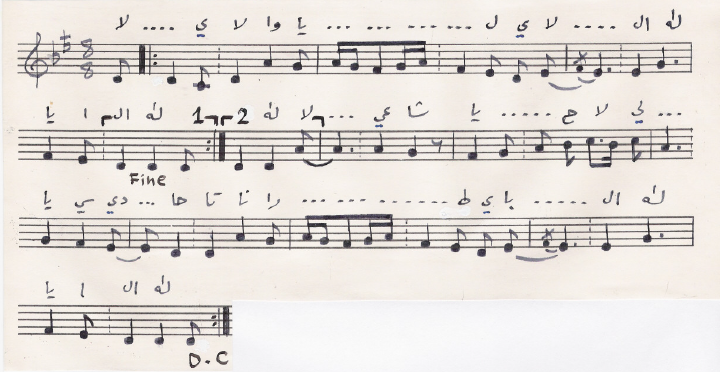 لا .... ي لا وا يا ... ... ... ... ل ي لا .... ال له
8
8
يا ا ال له 1 2 له لا ... عي شا يا ..... ح لا ..... لي ...
Fine
يا سي دي ... حا تا نا را ... ... ... ... ط ي با ..... ال له
يا ا ال له
D.C